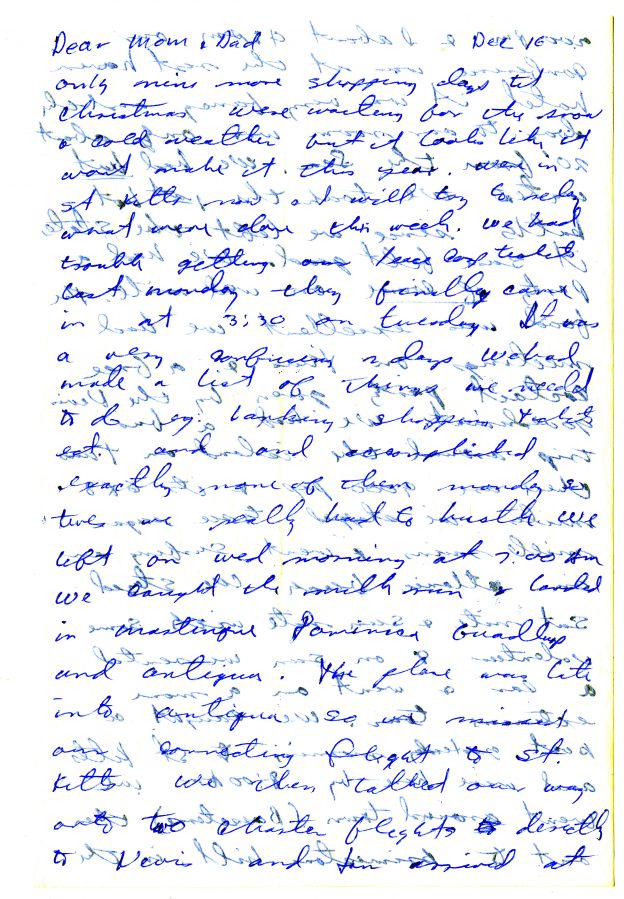 Dear Mom & Dad Dec 16
only nine more shopping days til
Christmas were waiting for the snow
& cold weather but it looks like it
wont make it this year. were in
st Kitts now & I will try to relay
what weve done this week. we had
trouble getting our tickets
last monday they finally came
in at 3:30 on tuesday. It was
a very confusing 2 days we had
made a list of things we needed
to do eg. banking shopping tickets
eat. and and accomplished
exactly none of them monday so
tues we really had to hustle we
left on wed morning at 7:00 Am
we caught the milk run & landed
in martinque Dominica Guadlup
and antigua. The plane was late
into antigua so we missed
our connecting flight to st.
Kitts we then talked our way
onto two charter flights directly
to Nevis and arrived at